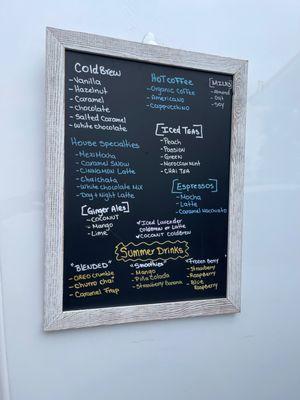 Cold Brew
-Vanilla
-Hazelnut
-Caramel
-Chocolate
-Salted Caramel
-White chocolate
Hot Coffee
-Organic Coffee
-Americano
-Cappuccino
[Milks]
-Almond
-Oat
-Soy
[Iced Teas]
-Peach
-Passion
-Green
-Moroccan Mint
-Chai Tea
House Specialties
-MexiMocha
-Caramel Snow
-Cinnamon Latte
-Chaichata
-White Chocolate Mix
-Day + Night Latte
[Espressos]
-Mocha
-Latte
-Caramel Macchiato
[Ginger Ales]
-Coconut
-Mango
-Lime
Iced Lavender
Coldbrew or Latte
Coconut Coldbrew
Summer Drinks
"Blended"
-Oreo Crumble
-Churro Chai
-Caramel Frap
"Smoothies"
-Mango
-Piña Colada
-Strawberry Banana
"Frozen Berry"
-Strawberry
-Raspberry
-Blue
Raspberry